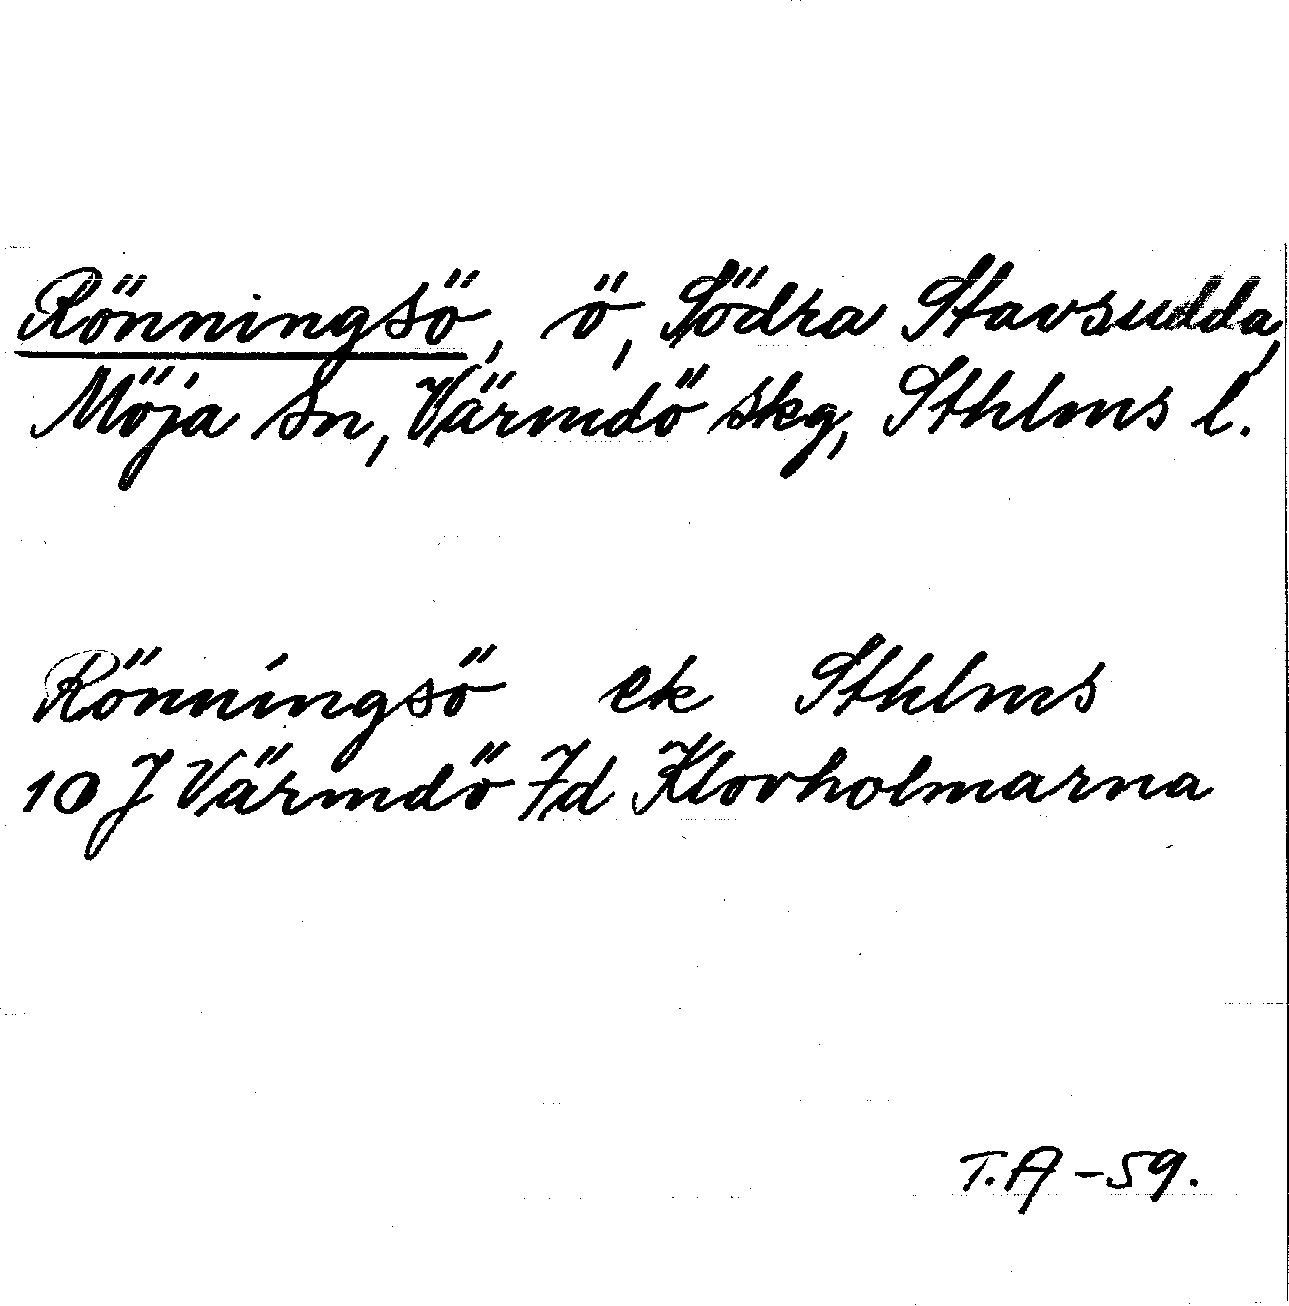 Rönningsö, ö, Södra Stavsudda,
Möja sn, Värmdö skg, Sthlms l.
Rönningsö ek Sthlms
10 J Värmdö 7d Klovholmarna
T.A -59.